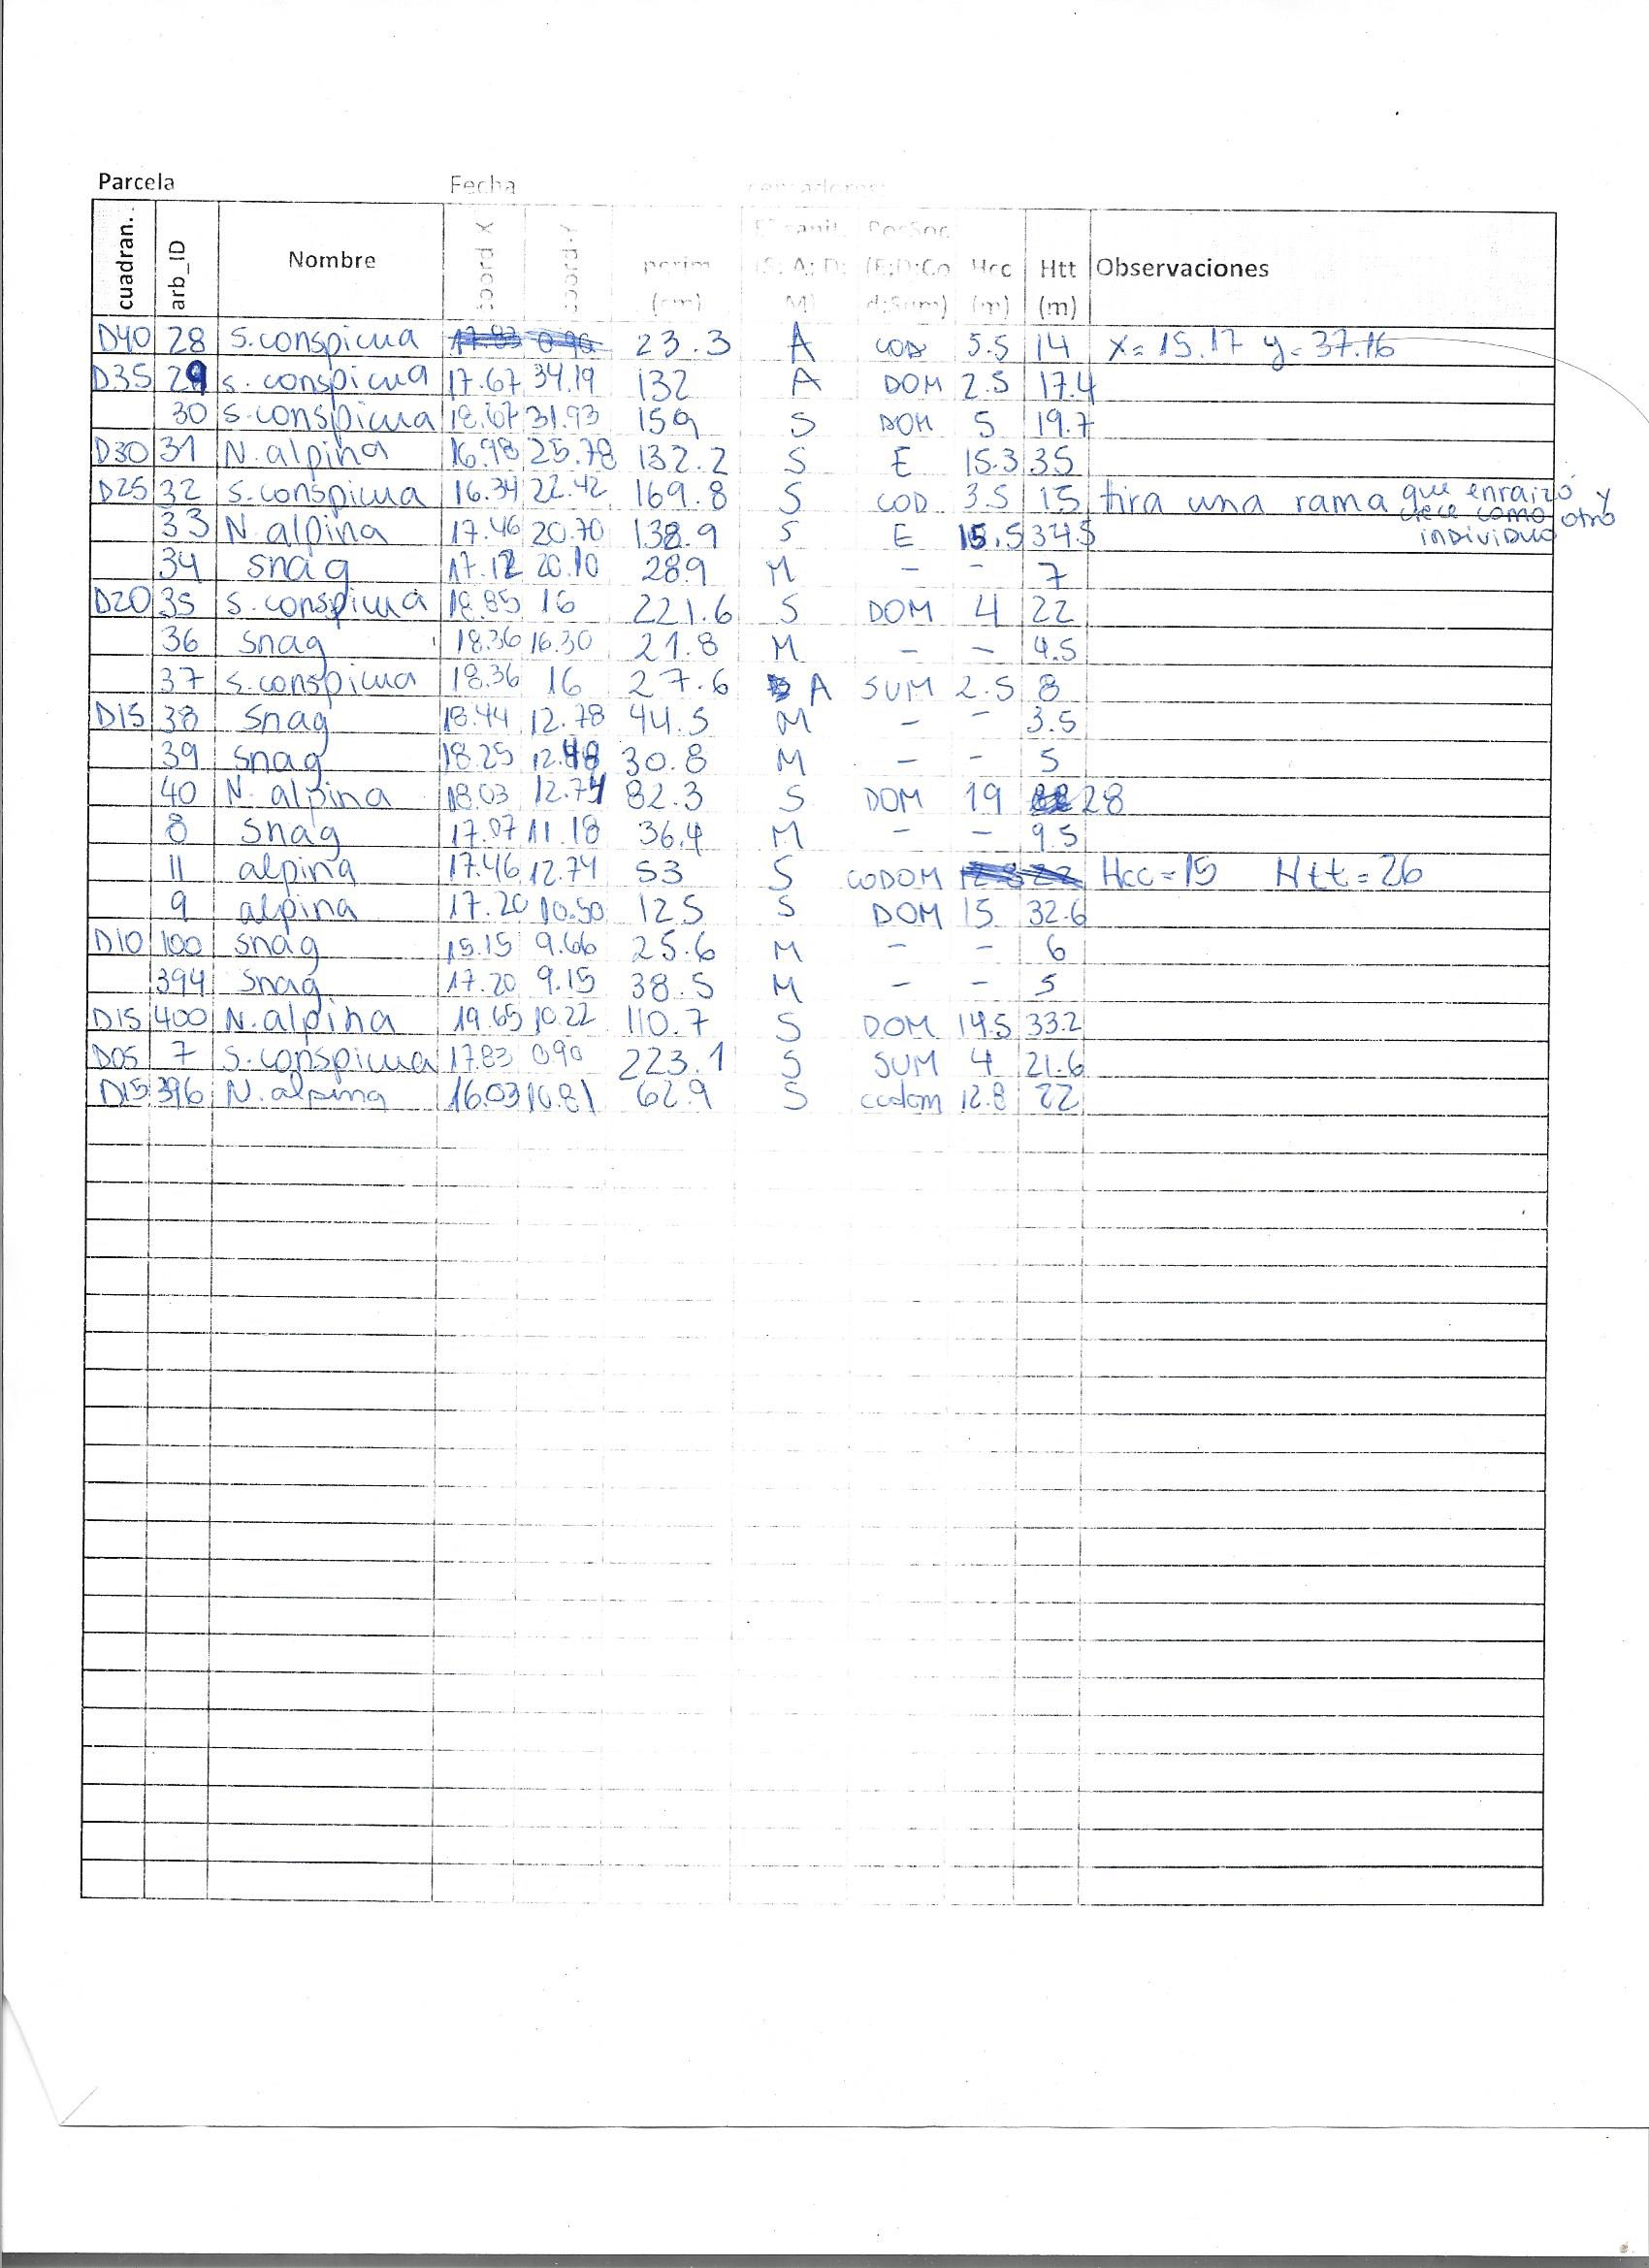 Parcela Fecha
cuadran. arb_ID Nombre coord X coord-Y perim (cm) (S; A; D; M) PosSoc (E;D;Co d;Sum) Hcc (m) Htt (m) Observaciones
D40 28 S. conspicua 23.3 A COD 5.5 14 x= 15.17 y= 37.16
D35 29 S. conspicua 17.67 34.19 132 A DOM 2.5 17.4
30 S. conspicua 18.67 31.93 159 S DOM 5 19.7
D30 31 N. alpina 16.98 25.78 132.2 S E 15.3 35
D25 32 S. conspicua 16.34 22.42 169.8 S COD 3.5 15 tira una rama que enraizó y
crece como otro
33 N. alpina 17.46 20.70 138.9 S E 15.5 34.5 individuo
34 snag 17.12 20.10 289 M - - 7
D20 35 S. conspicua 18.85 16 221.6 S DOM 4 22
36 snag 18.36 16.30 21.8 M - - 4.5
37 S. conspicua 18.36 16 27.6 A SUM 2.5 8
D15 38 snag 18.44 12.78 44.5 M - - 3.5
39 snag 18.25 30.8 M - - 5
40 N. alpina 18.03 12.74 82.3 S DOM 19 28
8 snag 17.07 11.18 36.4 M - - 9.5
11 alpina 17.46 12.74 53 S CODOM Hcc=15 Htt=26
9 alpina 17.20 10.50 125 S DOM 15 32.6
D10 100 snag 15.15 9.66 25.6 M - - 6
394 snag 17.20 9.15 38.5 M - - 5
D15 400 N. alpina 19.65 10.22 110.7 S DOM 14.5 33.2
D05 7 S. conspicua 17.83 0.90 223.1 S SUM 4 21.6
D15 396 N. alpina 16.03 10.81 62.9 S codom 12.8 22